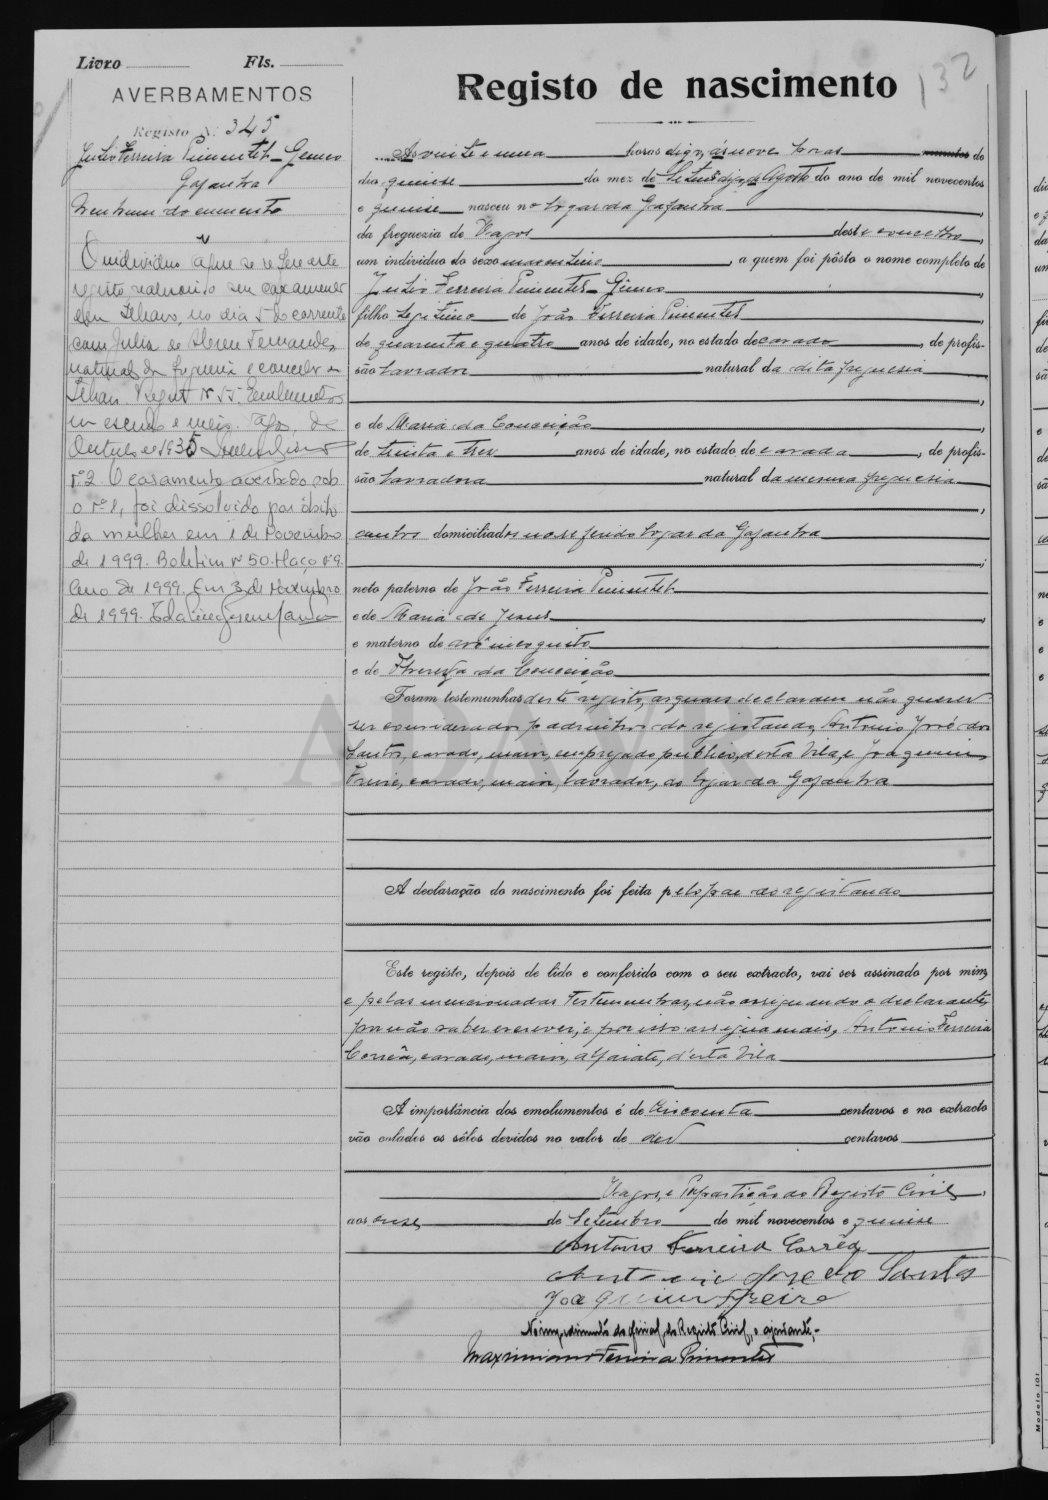 Livro Fls.
AVERBAMENTOS
Registo N.º 345
Julio Ferreira Pimentel Gomes
Gafanha
Nenhum documento
O individuo a que se refere este
registo realizou o seu casamento
em Ilhavo, no dia 5 do corrente
com Julia de Abreu Fernandes
natural da freguezia e concelho de
Ilhavo. Regist. Nº 55. Emolumentos
um escudo e meio. Vagos, de
Outubro 1935
nº 2 O casamento averbado sob
o nº 1, foi dissolvido por óbito
da mulher em 1 de Novembro
de 1999. Boletim nº 50. Maço nº 9.
Ano de 1999. Em 3 de Novembro
de 1999.
132
Registo de nascimento
As vinte e uma horas digo, ás nove horas minutos do
dia quinse do mez de Setº digo, de Agosto do ano de mil novecentos
e quinse nasceu no logar da Gafanha
da freguezia de Vagos deste concelho,
um individuo do sexo masculino, a quem foi pôsto o nome completo de
Julio Ferreira Pimentel Gomes
filho legitimo de João Ferreira Pimentel
de quarenta e quatro anos de idade, no estado de casado, de profis-
são lavrador natural da dita freguesia
e de Maria da Conceição
de trinta e tres anos de idade, no estado de casada, de profis-
são lavradora natural da mesma freguesia
e domiciliados no referido logar da Gafanha
neto paterno de João Ferreira Pimentel
e de Maria de Jesus
e materno de avô incognito
e de Thereza da Conceição
Foram testemunhas deste registo, as quaes declaram não querer
ser considerados padrinhos do registando, Antonio José dos
Santos, casado, maior, empregado publico, desta Vila, e Joaquim
Freire, casado, maior, lavrador, do logar da Gafanha
A declaração do nascimento foi feita pelo pae do registando
Este registo, depois de lido e conferido com o seu extracto, vai ser assinado por mim,
e pelas mencionadas testemunhas, não assignando o declarante,
por não saber escrever, e por isso assigna mais, Antonio Ferreira
Corrêa, casado, maior, alfaiate, d'esta Vila
A importância dos emolumentos é de cincoenta centavos e no extracto
vão colados os sêlos devidos no valor de dez centavos
Vagos, e Repartição do Registo Civil,
aos onse de Setembro de mil novecentos e quinse
Antonio Ferreira Corrêa
Antonio José dos Santos
Joaquim Freire
No impedimento do oficial do Registo Civil, o ajudante,
Maximiano Ferreira Pimentel
Modelo 101